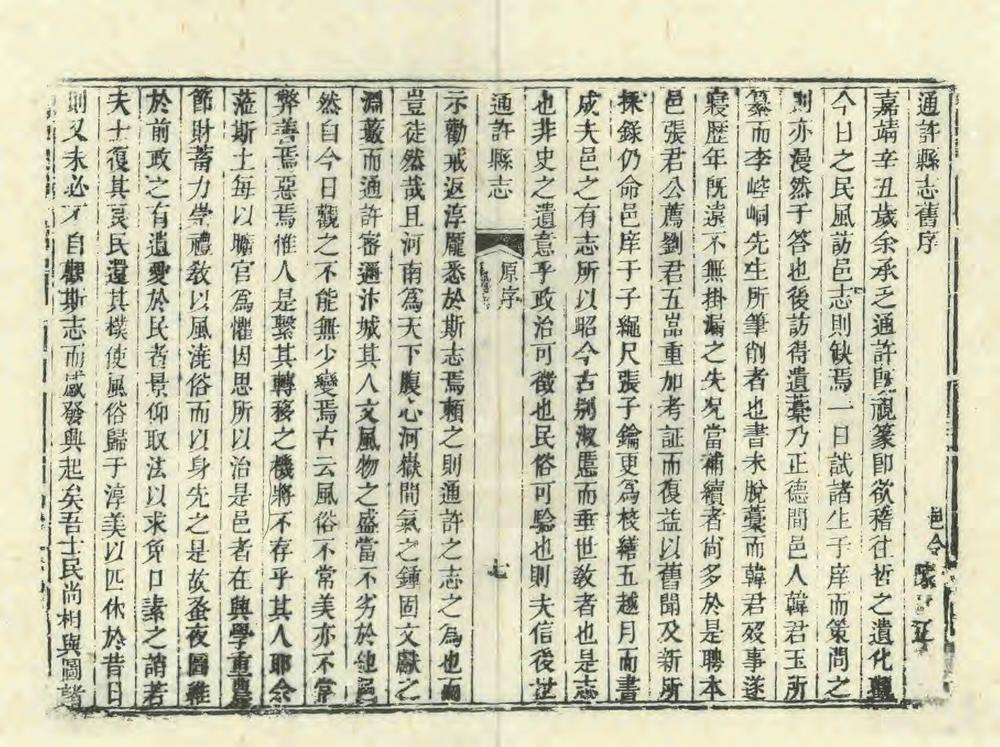 通許縣志舊序
邑令
嘉靖辛丑歲余承乏通許旣視篆卽欲稽往哲之遺化
今日之民風訪邑志則缺焉一日試諸生于庠而策問之
則亦漫然于答也後訪得遺藁乃正德間邑人韓君玉所
纂而李崆峒先生所筆削者也書未脫藁而韓君歿事遂
寢歷年旣遠不無掛漏之失况當補續者尚多於是聘本
邑張君公薦劉君五嵓重加考証而復益以舊聞及新所
採錄仍命邑庠于子繩尺張子鑰更為校繕五越月而書
成夫邑之有志所以昭今古别淑慝而垂世敎者也是志
也非史之遺意乎政治可徵也民俗可驗也則夫信後世
通許縣志
原序
七
示勸戒返淳龎悉於斯志焉賴之則通許之志之為也而
豈徒然哉且河南為天下腹心河嶽間氣之鍾固文獻之
淵藪而通許密邇汴城其人文風物之盛當不劣於他邑
然自今日觀之不能無少變焉古云風俗不常美亦不常
弊善焉惡焉惟人是繫其轉移之機將不存乎其人耶余
蒞斯土每以曠官為懼因思所以治是邑者在興學重農
節財蓄力崇禮敎以風澆俗而以身先之是故蚤夜圖維
於前政之有遺愛於民者景仰取法以求免口素之誚若
夫士復其良民還其樸使風俗歸于淳美以匹休於昔日
則又未必不自觀斯志而感發興起矣吾士民尚相與圖諸